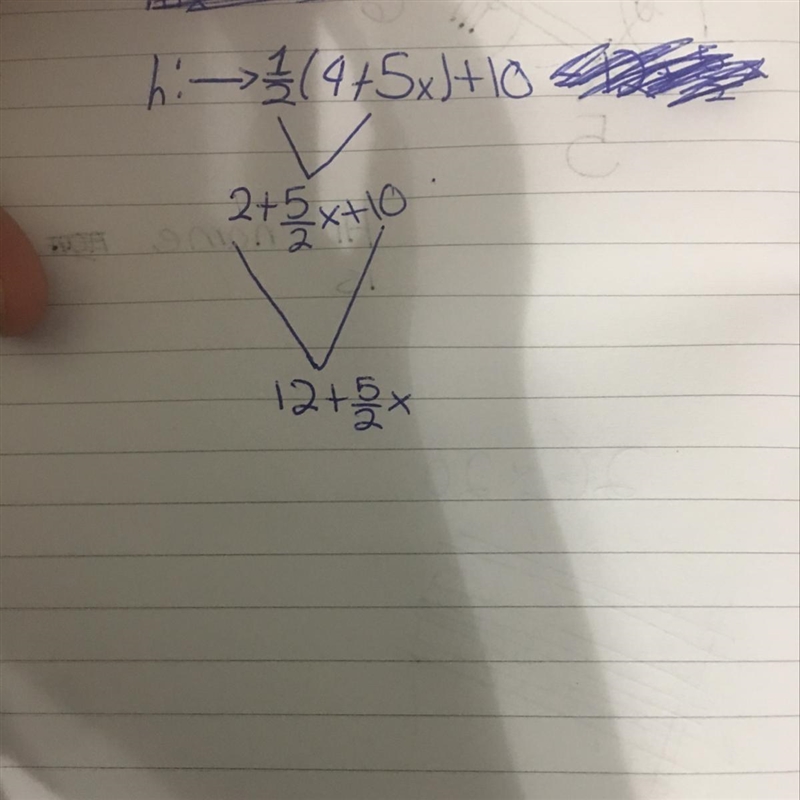 h: → 1/2(4+5x)+10
2+5/2x+10
12+5/2x